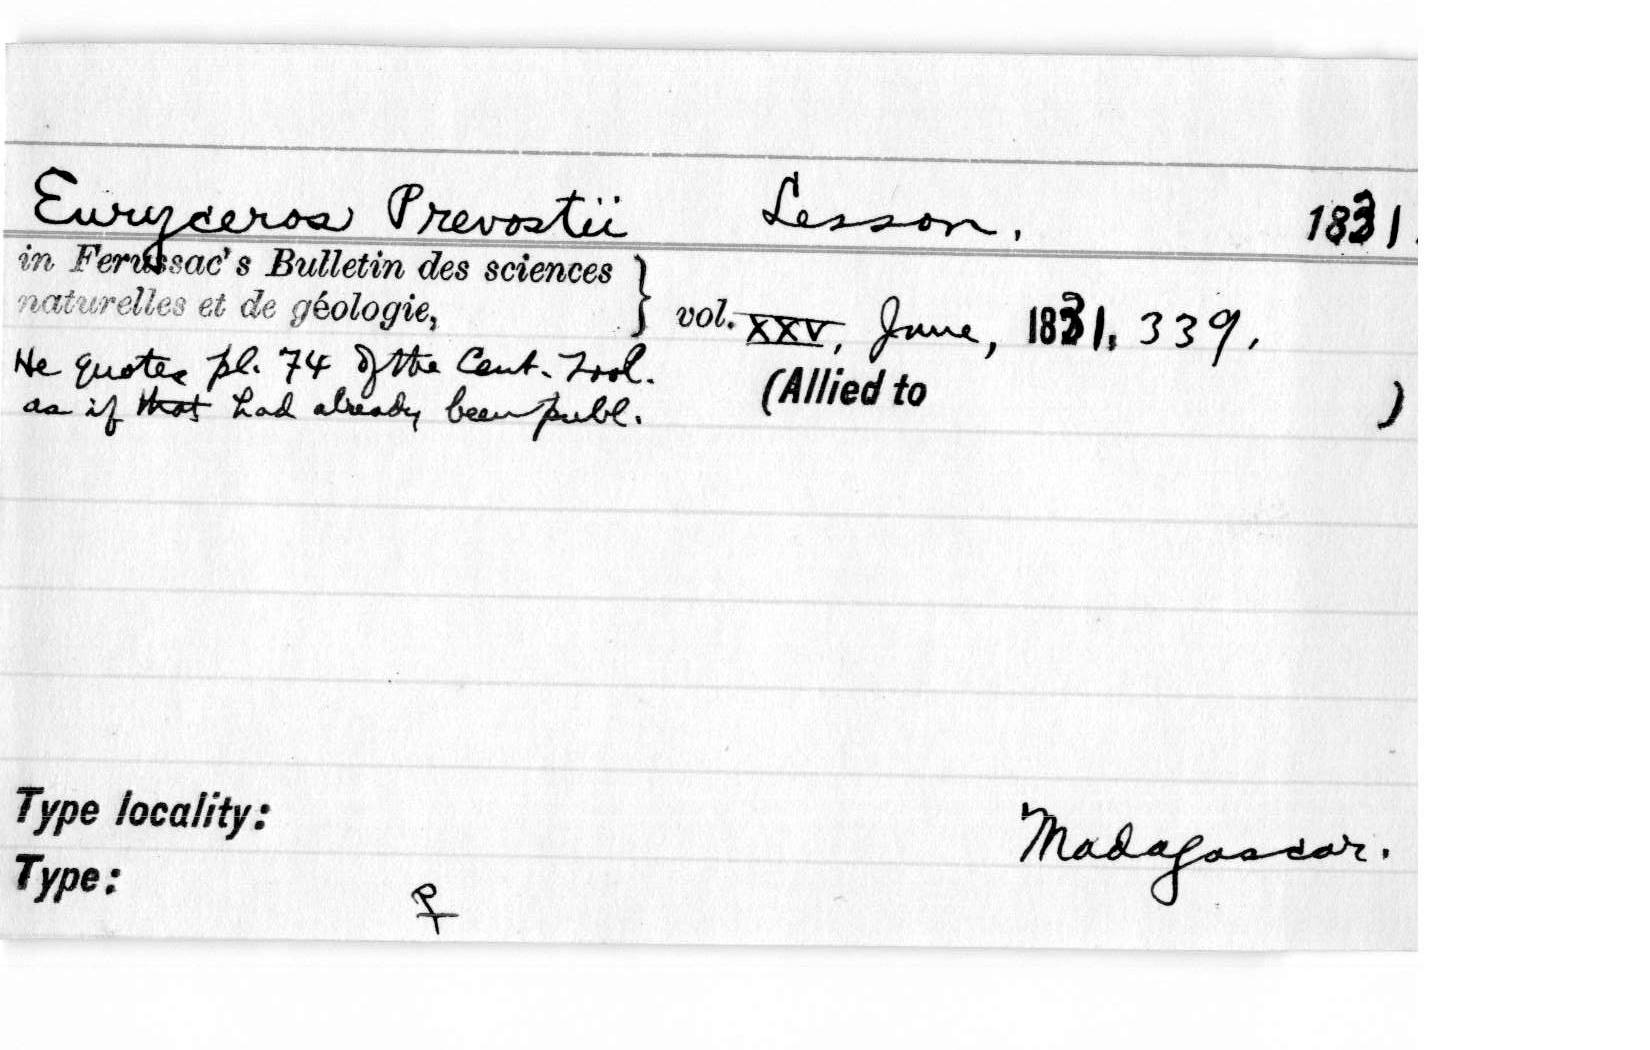 Euryceros Prevostii Lesson. 1831.
in Ferussac's Bulletin des sciences
naturelles et de géologie, } vol. XXV, June, 1831. 339.
He quotes pl. 74 of the Cent. Zool.
as if that had already been publ.
(Allied to )
Type locality: Madagascar.
Type: ♀